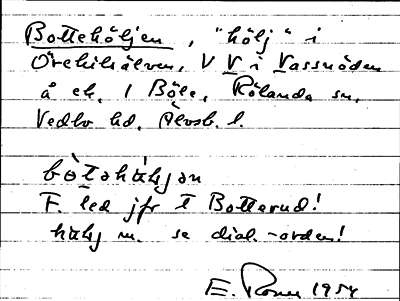 Bottehöljen, "hölj" i
Örekilsälven, V V i Vassnöden
å ek. 1 Böle, Rölanda sn.
Vedbo hd, Älvsb. l.
bòtəhàljən
F. led jfr t Botterud!
hàlj m. se dial.-orden!
E. 1954